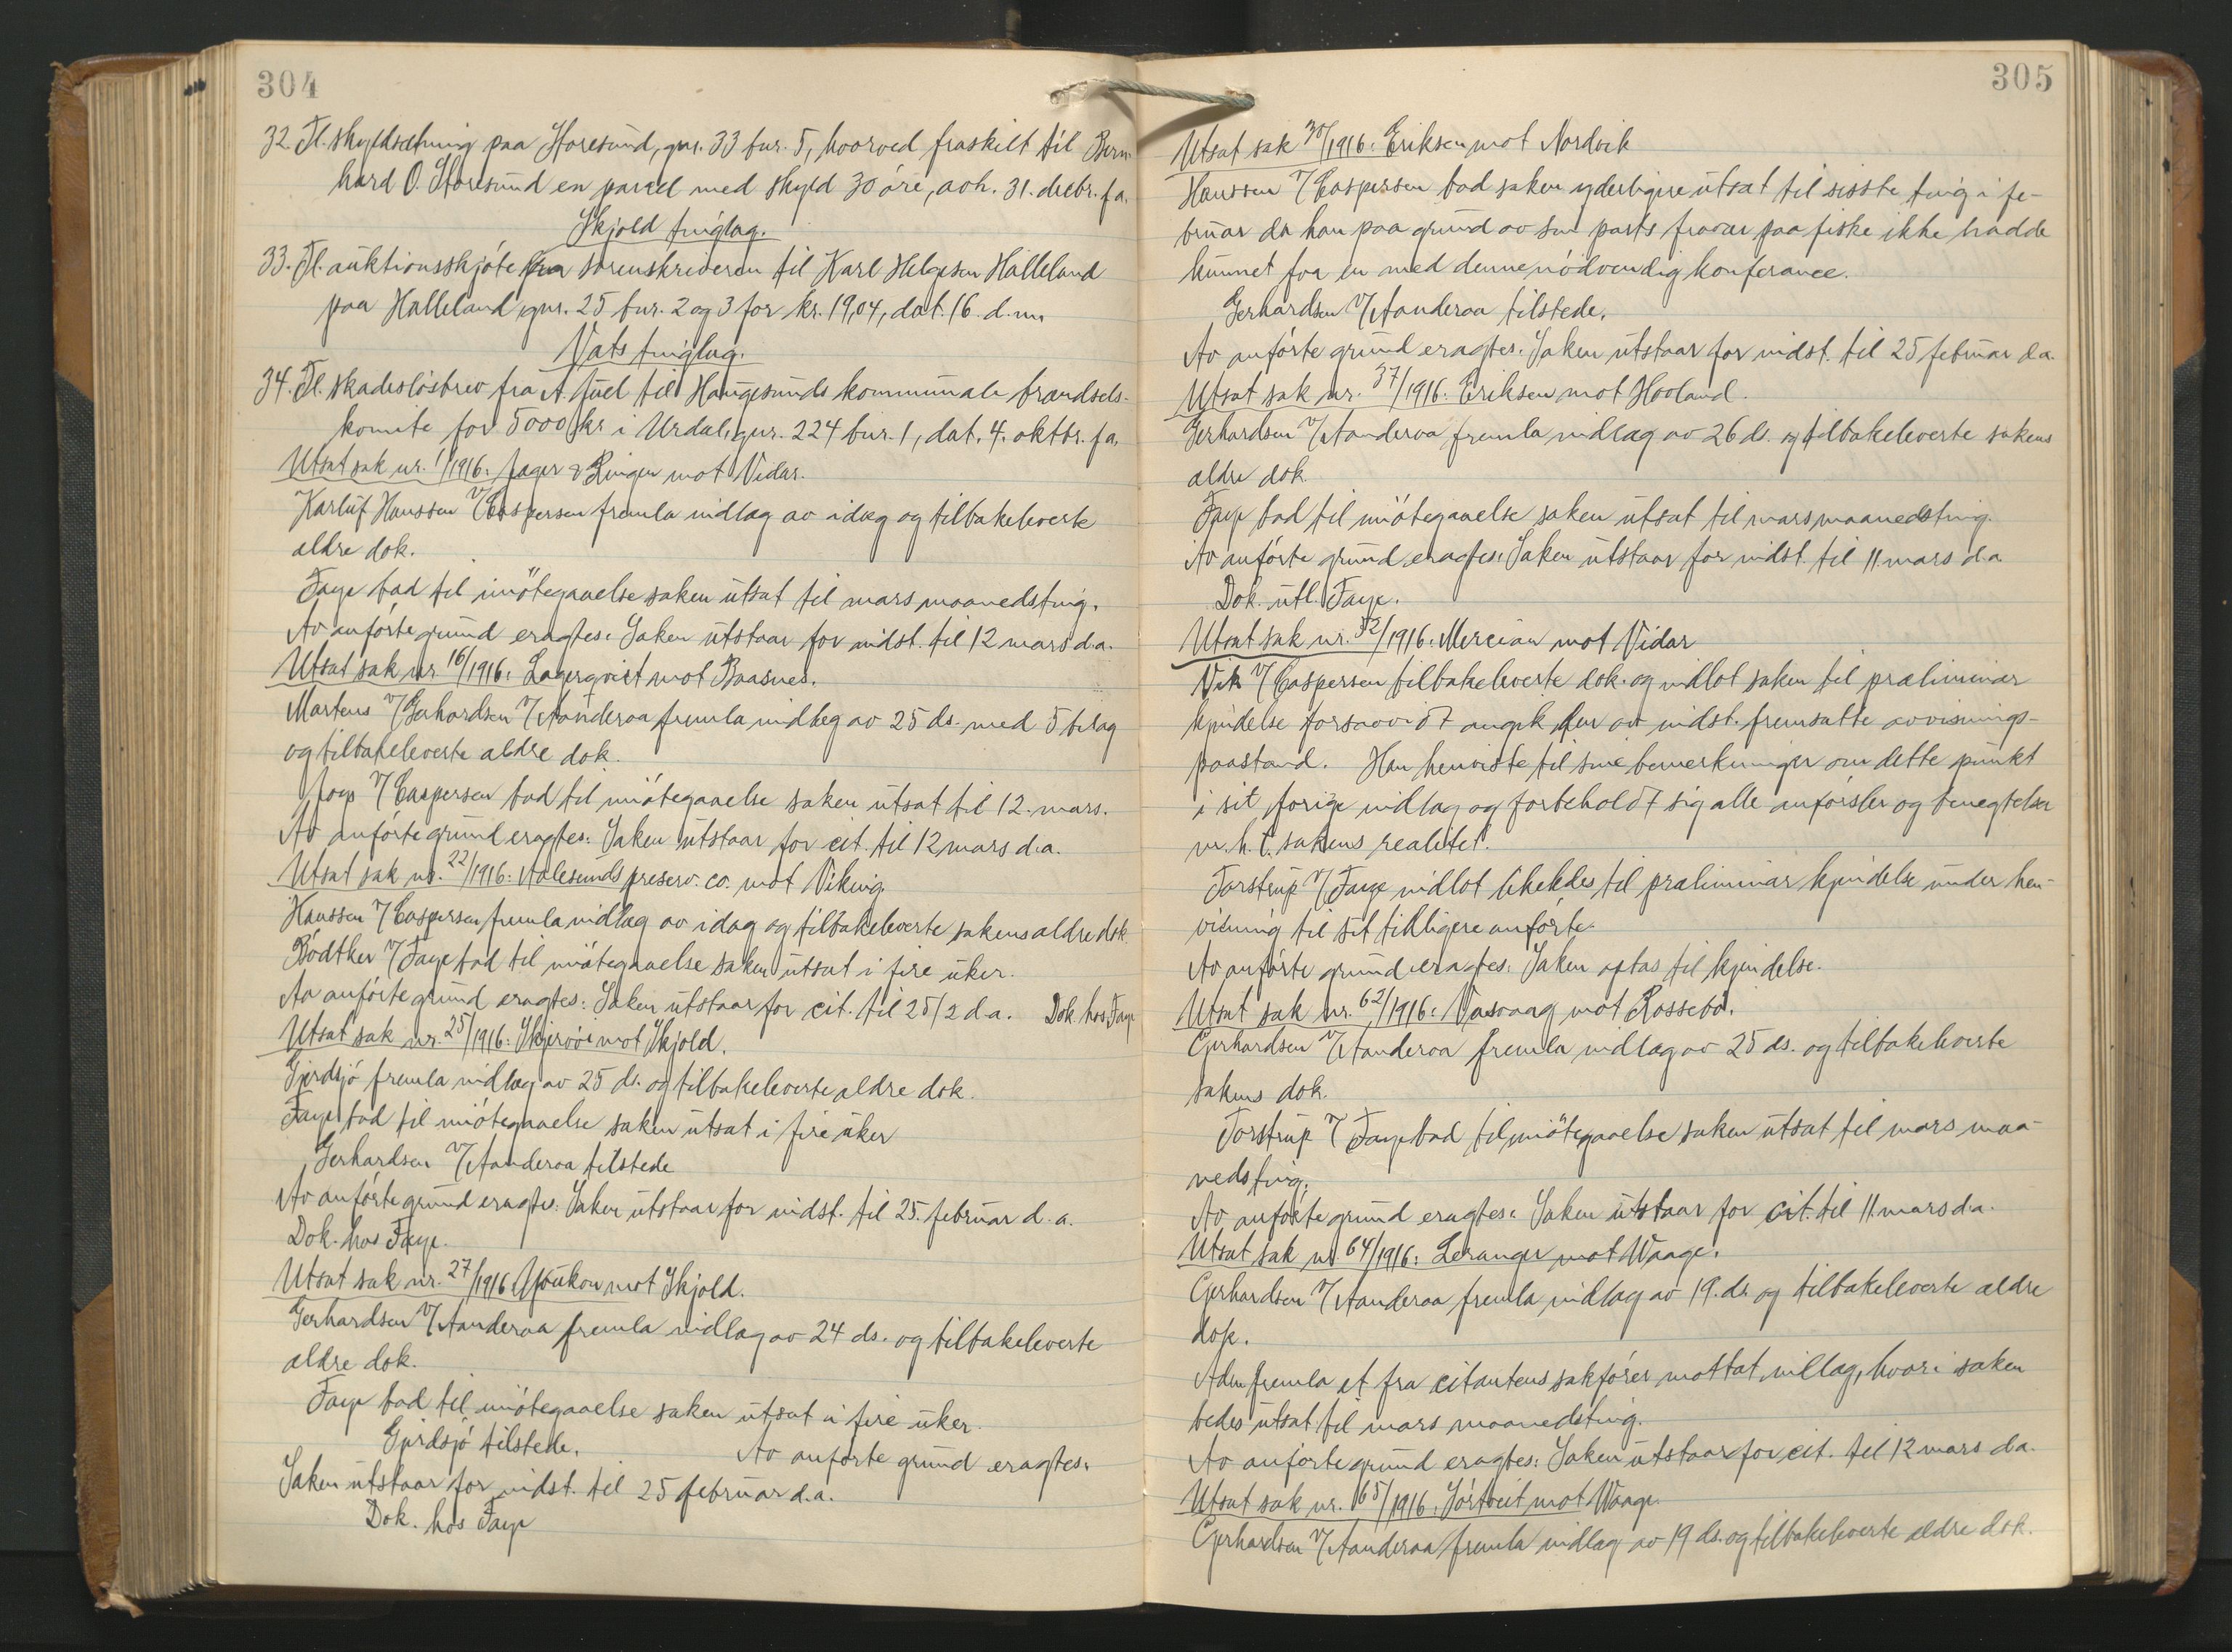 304
32. Tl. skyldsætning paa Storesund, gnr. 33 bnr. 5, hvorved fraskilt til Bern-
hard O. Storesund en parcel med skyld 30 øre, avh. 31. decbr. f. a.
Skjold tinglag.
33. Tl. auktionsskjøte fra sorenskriveren til Karl Helgesen Halleland
paa Halleland, gnr. 25 bnr. 2 og 3 for kr. 19,04, dat. 16. d. m.
Vats tinglag.
34. Tl. skadesløsbrev fra A. Juel til Haugesunds kommunale brændsels-
komite for 5000 kr i Urdal, gnr. 224 bnr. 1, dat. 4. oktbr. f. a.
Utsat sak nr. 1/1916: Jager & Ringen mot Vidar.
Karluf Hanssen v/Caspersen fremla indlæg av idag og tilbakeleverte
ældre dok.
Faye bad til imøtegaaelse saken utsat til mars maanedsting.
Av anførte grund eragtes: Saken utstaar for indst. til 12 mars d.a.
Utsat sak nr. 16/1916: Lagerqvist mot Baasnes.
Martens v/Gerhardsen v/Aanderaa fremla indlæg av 25 ds. med 5 bilag
og tilbakeleverte ældre dok.
v/Caspersen bad til imøtegaaelse saken utsat til 12. mars.
Av anførte grund eragtes: Saken utstaar for cit. til 12 mars d.a.
Utsat sak nr. 22/1916: Aalesunds preserv. co. mot Viking
Hanssen v/Caspersen fremla indlæg av idag og tilbakeleverte sakens ældre dok.
Bødtker v/Faye bad til imøtegaaelse saken utsat i fire uker.
Av anførte grund eragtes: Saken utstaar for cit. til 25/2 d.a. Dok. hos Faye
Utsat sak nr. 25/1916: mot Skjold.
Gjerdsjø fremla indlæg av 25 ds. og tilbakeleverte ældre dok.
Faye bad til imøtegaaelse saken utsat i fire uker
Gerhardsen v/Aanderaa tilstede
Av anførte grund eragtes: Saken utstaar for indst. til 25. februar d.a.
Dok. hos Faye.
Utsat sak nr. 27/1916 mot Skjold.
Gerhardsen v/Aanderaa fremla indlæg av 24 ds. og tilbakeleverte
ældre dok.
Faye bad til imøtegaaelse saken utsat i fire uker.
Gjerdsjø tilstede. Av anførte grund eragtes:
Saken utstaar for indst. til 25 februar d.a.
Dok. hos Faye
305
Utsat sak 30/1916: Eriksen mot Nordvik
Hanssen v/Caspersen bad saken yderligere utsat til sisste ting i fe-
bruar da han paa grund av sin parts fravær paa fiske ikke hadde
kunnet faa en med denne nødvendig konferance.
Gerhardsen v/Aanderaa tilstede.
Av anførte grund eragtes: Saken utstaar for indst. til 25 februar d.a.
Utsat sak nr. 37/1916: Eriksen mot Hovland.
Gerhardsen v/Aanderaa fremla indlæg av 26 ds. og tilbakeleverte sakens
ældre dok.
Faye bad til imøtegaaelse saken utsat til mars maanedsting.
Av anførte grund eragtes: Saken utstaar for indst. til 11. mars d.a.
Dok. utl. Faye.
Utsat sak nr. 52/1916: Mercian mot Vidar
Vik v/Caspersen tilbakeleverte dok. og indlot saken til præliminær
kjendelse forsaavidt angik den av indst. fremsatte avvisnings-
paastand. Han henviste til sine bemerkninger om dette punkt
i sit forige indlæg og forbeholdt sig alle anførsler og benegtelser
m. h. t. sakens realitet.
Torstrup v/Faye indlot likeledes til præliminær kjendelse under hen-
visning til sit tidligere anførte.
Av anførte grund eragtes: Saken optas til kjendelse.
Utsat sak nr. 62/1916: Vasvaag mot Rossebø.
Gerhardsen v/Aanderaa fremla indlæg av 25 ds. og tilbakeleverte
sakens dok.
Torstrup v/Faye bad til imøtegaaelse saken utsat til mars maa-
nedsting.
Av anførte grund eragtes: Saken utstaar for cit. til 11. mars d.a.
Utsat sak nr. 64/1916: Leranger mot Waage.
Gerhardsen v/Aanderaa fremla indlæg av 19. ds. og tilbakeleverte ældre
dok.
Adm. fremla et fra citantens sakfører mottat indlæg, hvori saken
bedes utsat til mars maanedsting.
Av anførte grund eragtes: Saken utstaar for cit. til 12 mars d.a.
Utsat sak nr. 65/1916. Sørtveit mot Waage.
Gerhardsen v/Aanderaa fremla indlæg av 19 ds. og tilbakeleverte ældre dok.